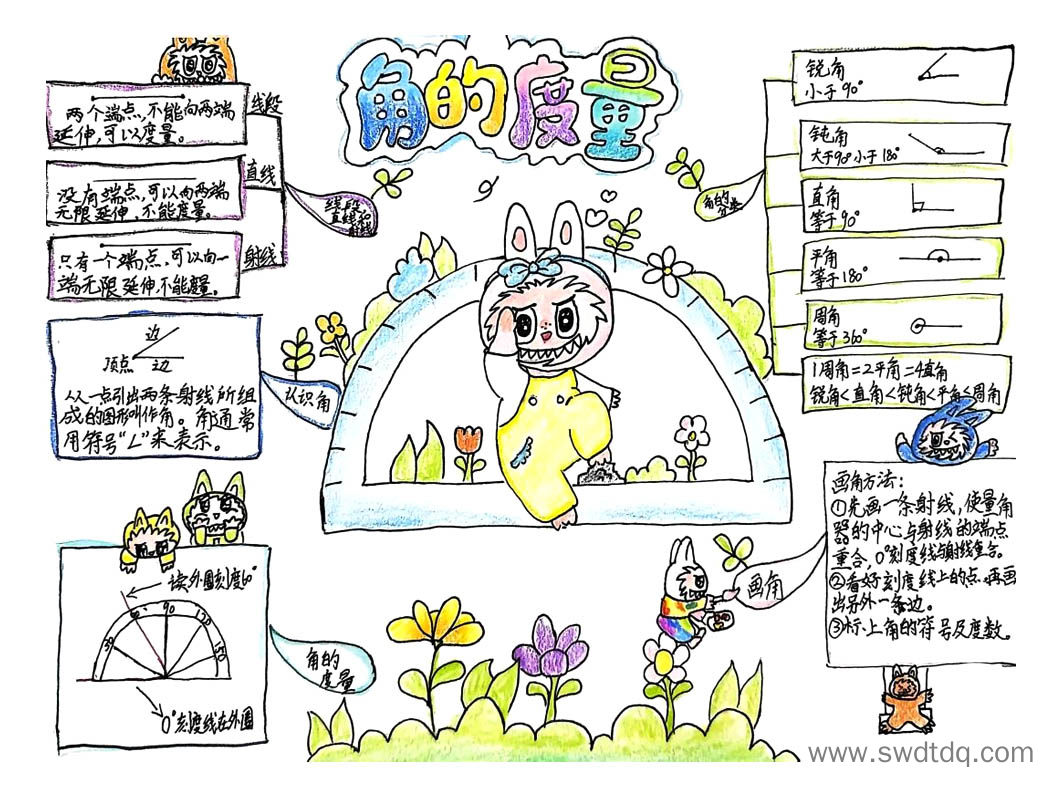 角的度量
两个端点,不能向两端
延伸,可以度量。
线段
没有端点,可以向两端
无限延伸,不能度量。
直线
只有一个端点,可以向一
端无限延伸,不能度量。
射线
线段
直线和
射线
边
顶点 边
从一点引出两条射线所组
成的图形叫作角。角通常
用符号“∠”来表示。
认识角
读外圈刻度60°
30
60
90
120
150
0°刻度线在外圈
角的
度量
角的
分类
锐角
小于90°
钝角
大于90°小于180°
直角
等于90°
平角
等于180°
周角
等于360°
1周角=2平角=4直角
锐角<直角<钝角<平角<周角
画角
画角方法:
①先画一条射线,使量角
器的中心与射线的端点
重合,0°刻度线与射线重合。
②看好刻度线上的点,再画
出另外一条边。
③标上角的符号及度数。
www.swdtdq.com